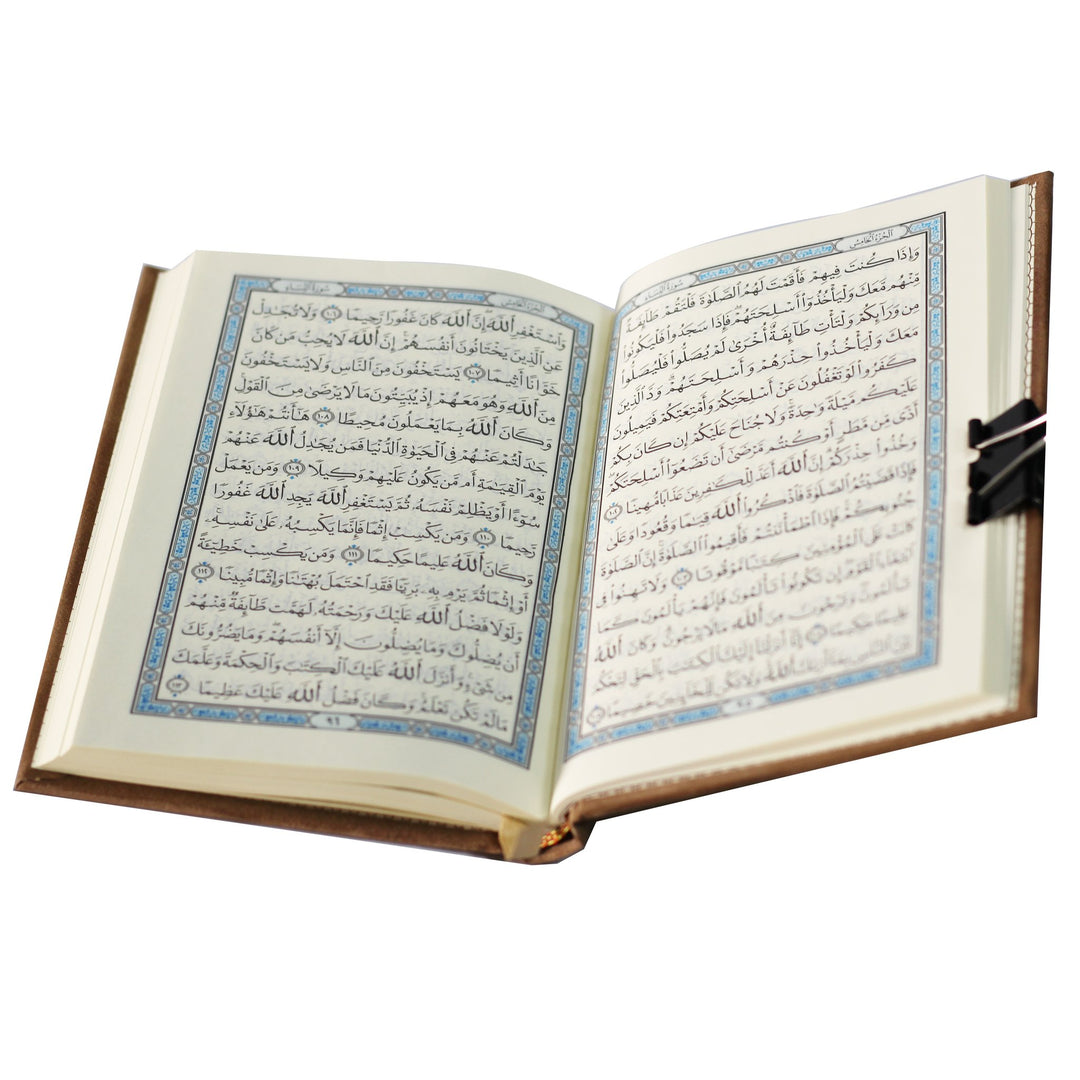 ٱلجُزْءُ ٱلخَامِسُ سُورَةُ النِّسَاءِ
وَإِذَا كُنتَ فِيهِمْ فَأَقَمْتَ لَهُمُ ٱلصَّلَوٰةَ فَلْتَقُمْ طَآئِفَةٌ
مِّنْهُم مَّعَكَ وَلْيَأْخُذُوٓا۟ أَسْلِحَتَهُمْۖ فَإِذَا سَجَدُوا۟ فَلْيَكُونُوا۟
مِن وَرَآئِكُمْ وَلْتَأْتِ طَآئِفَةٌ أُخْرَىٰ لَمْ يُصَلُّوا۟ فَلْيُصَلُّوا۟
مَعَكَ وَلْيَأْخُذُوا۟ حِذْرَهُمْ وَأَسْلِحَتَهُمْۗ وَدَّ ٱلَّذِينَ
كَفَرُوا۟ لَوْ تَغْفُلُونَ عَنْ أَسْلِحَتِكُمْ وَأَمْتِعَتِكُمْ فَيَمِيلُونَ
عَلَيْكُم مَّيْلَةً وَٰحِدَةًۚ وَلَا جُنَاحَ عَلَيْكُمْ إِن كَانَ بِكُمْ
أَذًى مِّن مَّطَرٍ أَوْ كُنتُم مَّرْضَىٰٓ أَن تَضَعُوٓا۟ أَسْلِحَتَكُمْۖ
وَخُذُوا۟ حِذْرَكُمْۗ إِنَّ ٱللَّهَ أَعَدَّ لِلْكَٰفِرِينَ عَذَابًا مُّهِينًا ١٠٢
فَإِذَا قَضَيْتُمُ ٱلصَّلَوٰةَ فَٱذْكُرُوا۟ ٱللَّهَ قِيَٰمًا وَقُعُودًا وَعَلَىٰ
جُنُوبِكُمْۚ فَإِذَا ٱطْمَأْنَنتُمْ فَأَقِيمُوا۟ ٱلصَّلَوٰةَۚ إِنَّ ٱلصَّلَوٰةَ
كَانَتْ عَلَى ٱلْمُؤْمِنِينَ كِتَٰبًا مَّوْقُوتًا ١٠٣ وَلَا تَهِنُوا۟ فِى
ٱبْتِغَآءِ ٱلْقَوْمِۖ إِن تَكُونُوا۟ تَأْلَمُونَ فَإِنَّهُمْ يَأْلَمُونَ كَمَا
تَأْلَمُونَۖ وَتَرْجُونَ مِنَ ٱللَّهِ مَا لَا يَرْجُونَۗ وَكَانَ ٱللَّهُ
عَلِيمًا حَكِيمًا ١٠٤ إِنَّآ أَنزَلْنَآ إِلَيْكَ ٱلْكِتَٰبَ بِٱلْحَقِّ لِتَحْكُمَ
بَيْنَ ٱلنَّاسِ بِمَآ أَرَىٰكَ ٱللَّهُۚ وَلَا تَكُن لِّلْخَآئِنِينَ خَصِيمًا ١٠٥
٩٥
ٱلجُزْءُ ٱلخَامِسُ سُورَةُ النِّسَاءِ
وَٱسْتَغْفِرِ ٱللَّهَۖ إِنَّ ٱللَّهَ كَانَ غَفُورًا رَّحِيمًا ١٠٦ وَلَا تُجَٰدِلْ
عَنِ ٱلَّذِينَ يَخْتَانُونَ أَنفُسَهُمْۚ إِنَّ ٱللَّهَ لَا يُحِبُّ مَن كَانَ
خَوَّانًا أَثِيمًا ١٠٧ يَسْتَخْفُونَ مِنَ ٱلنَّاسِ وَلَا يَسْتَخْفُونَ
مِنَ ٱللَّهِ وَهُوَ مَعَهُمْ إِذْ يُبَيِّتُونَ مَا لَا يَرْضَىٰ مِنَ ٱلْقَوْلِۚ
وَكَانَ ٱللَّهُ بِمَا يَعْمَلُونَ مُحِيطًا ١٠٨ هَٰٓأَنتُمْ هَٰٓؤُلَآءِ
جَٰدَلْتُمْ عَنْهُمْ فِى ٱلْحَيَوٰةِ ٱلدُّنْيَا فَمَن يُجَٰدِلُ ٱللَّهَ عَنْهُمْ
يَوْمَ ٱلْقِيَٰمَةِ أَم مَّن يَكُونُ عَلَيْهِمْ وَكِيلًا ١٠٩ وَمَن يَعْمَلْ
سُوٓءًا أَوْ يَظْلِمْ نَفْسَهُۥ ثُمَّ يَسْتَغْفِرِ ٱللَّهَ يَجِدِ ٱللَّهَ غَفُورًا
رَّحِيمًا ١١٠ وَمَن يَكْسِبْ إِثْمًا فَإِنَّمَا يَكْسِبُهُۥ عَلَىٰ نَفْسِهِۦۚ
وَكَانَ ٱللَّهُ عَلِيمًا حَكِيمًا ١١١ وَمَن يَكْسِبْ خَطِيٓئَةً
أَوْ إِثْمًا ثُمَّ يَرْمِ بِهِۦ بَرِيٓئًا فَقَدِ ٱحْتَمَلَ بُهْتَٰنًا وَإِثْمًا مُّبِينًا ١١٢
وَلَوْلَا فَضْلُ ٱللَّهِ عَلَيْكَ وَرَحْمَتُهُۥ لَهَمَّت طَّآئِفَةٌ مِّنْهُمْ
أَن يُضِلُّوكَ وَمَا يُضِلُّونَ إِلَّآ أَنفُسَهُمْۖ وَمَا يَضُرُّونَكَ
مِن شَىْءٍۚ وَأَنزَلَ ٱللَّهُ عَلَيْكَ ٱلْكِتَٰبَ وَٱلْحِكْمَةَ وَعَلَّمَكَ
مَا لَمْ تَكُن تَعْلَمُۚ وَكَانَ فَضْلُ ٱللَّهِ عَلَيْكَ عَظِيمًا ١١٣
٩٦